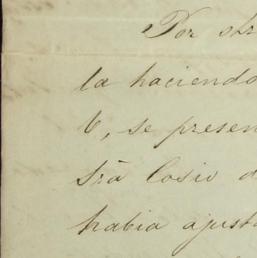 Por otr
la hacienda
V, se presen
Srã Cosio d
habia ajust